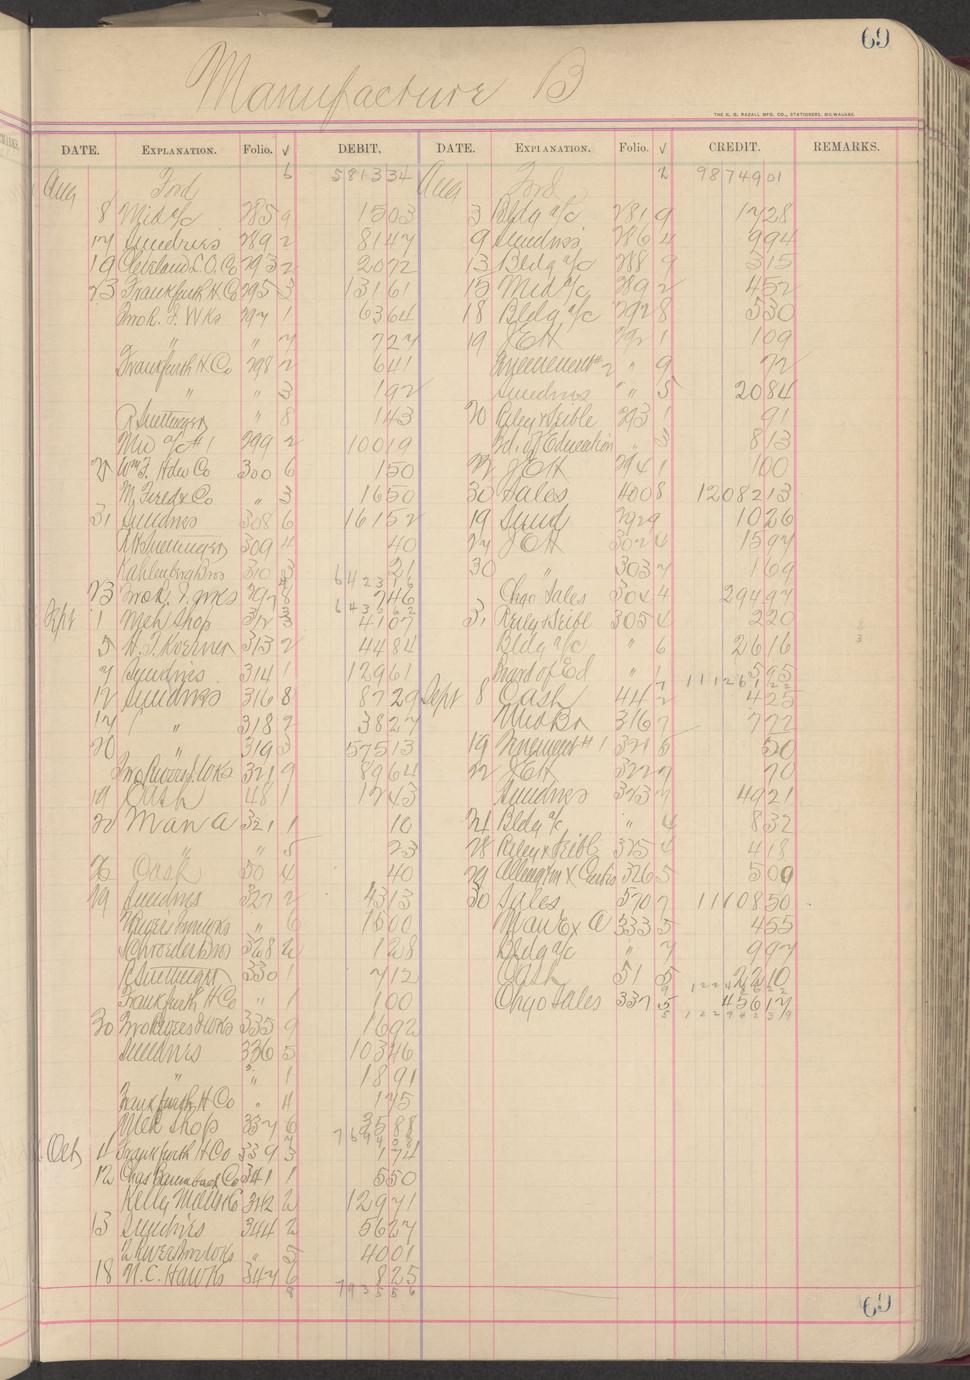 69
Manufacture B
THE H. G. RAZALL MFG. CO., STATIONERS, MILWAUKEE.
DATE. EXPLANATION. Folio. √ DEBIT. DATE. EXPLANATION. Folio. √ CREDIT. REMARKS.
Aug Ford 6 581334 Aug Ford 2 9874901
8 Mid a/c 285 9 1503 3 Bldg a/c 281 9 1728
17 Sundries 289 2 8147 9 Sundries 286 4 994
19 Cleveland L.O. Co 293 2 2072 13 Bldg a/c 288 9 315
23 Frankfurth H Co 295 3 13161 15 Mid a/c 289 2 452
297 1 6364 18 Bldg a/c 292 8 530
" " 7 727 19 JEK 292 1 109
Frankfurth H Co 298 2 641 " 9 72
" " 3 192 Sundries " 5 2084
R Suettinger " 8 143 20 Riley & Seible 293 1 91
Mid a/c #1 299 2 10019 Bd. of Education " 3 813
25 Wm F. Hdw Co 300 6 150 27 JEK 294 1 100
M. Field & Co " 3 1650 30 Sales 400 8 1208213
31 Sundries 308 6 16152 19 Sund 292 9 1026
309 4 40 27 JEK 302 4 1597
Kahlenberg Bros 310 3 21 30 " 303 7 169
4 642316
23 297 8 746 Chgo Sales 304 4 29497
643262
Sept 1 Meh Shop 312 3 4107 31 Riley & Seibl 305 4 220
5 H. F. Koerner 313 2 4484 Bldg a/c " 6 2616
7 Sundries 314 1 12961 Board of Ed " 1 595
7 11126122
12 Sundries 316 8 8729 Sept 8 Cash 44 2 425
17 " 318 2 3827 Mid Br 316 7 772
20 " 319 3 57513 19 321 5 50
321 9 8964 22 JEK 322 7 70
19 Cash 48 1 1243 Sundries 323 7 4921
20 Man A 321 1 16 24 Bldg a/c " 4 832
" " 5 23 28 Riley & Seibl 325 4 418
26 Cash 50 4 40 29 326 5 500
29 Sundries 327 2 4313 30 Sales 570 7 1110850
" 6 1500 Man Ex A 333 5 455
Schroeder Bros 328 2 128 Bldg a/c " 7 997
R Suettinger 330 1 712 Cash 51 5 2210
Frankfurth H Co " 1 100 Chgo Sales 337 5 45617
30 335 9 1692
Sundries 336 5 10346
" " 1 1891
Frankfurth H Co " 4 175
Meh Shop 337 6 3588
Oct 4 Frankfurth H Co 339 3 174
12 341 1 550
342 2 12971
13 Sundries 344 2 5627
" 5 4001
18 N.C. Hawks 347 6 825
8 793556
69